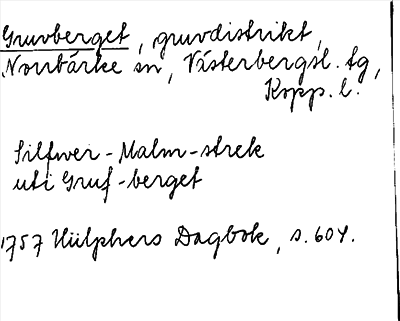 Gruvberget, gruvdistrikt,
Norrbärke sn, Västerbergsl. tg,
Kopp. l.
Silfwer-Malm-strek
uti Gruf-berget
1757 Hülphers Dagbok, s. 604.